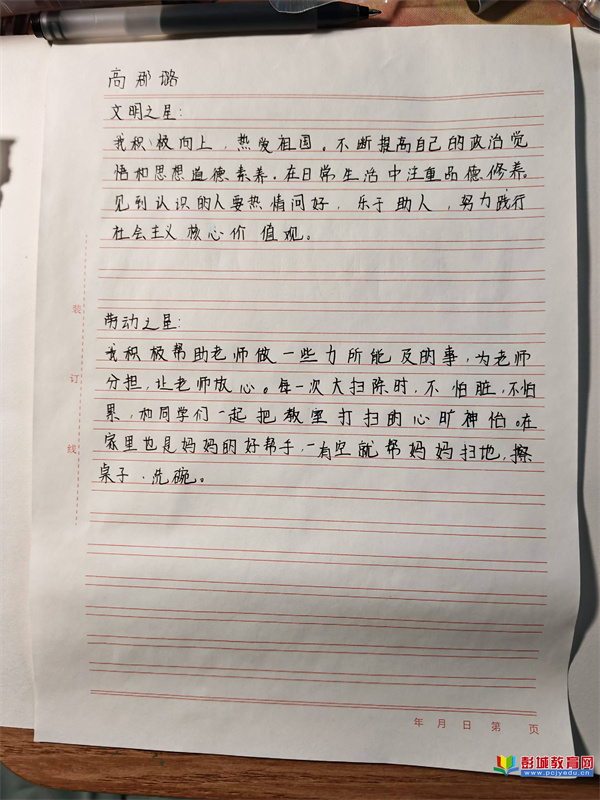 高郡璐
文明之星：
我积极向上，热爱祖国。不断提高自己的政治觉
悟和思想道德素养。在日常生活中注重品德修养。
见到认识的人要热情问好，乐于助人，努力践行
社会主义核心价值观。
劳动之星：
我积极帮助老师做一些力所能及的事，为老师
分担，让老师放心。每一次大扫除时，不怕脏，不怕
累，和同学们一起把教室打扫的心旷神怡。在
家里也是妈妈的好帮手，一有空就帮妈妈扫地，擦
桌子、洗碗。
装
订
线
年 月 日 第 页
彭城教育网
www.pcjyedu.cn